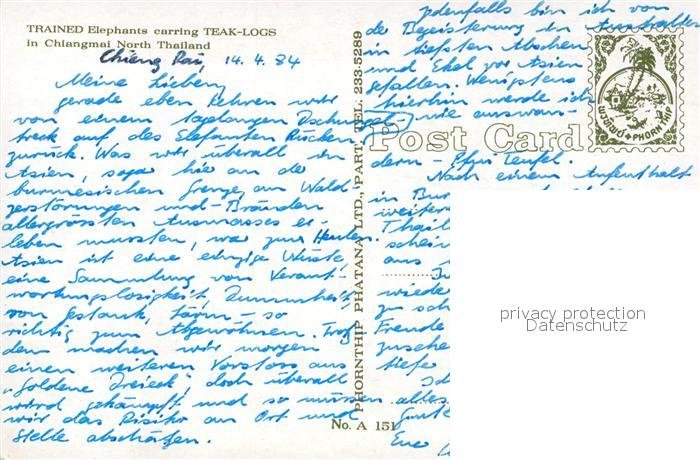 TRAINED Elephants carring TEAK-LOGS
in Chiangmai North Thailand
Chieng Rai, 14.4.84
Meine Lieben,
gerade eben kehren wir
von einem tagelangen Dschungel-
treck auf des Elefanten Rücken
zurück. Was wir überall in
Asien, sogar hier an der
burmesischen Grenze, an Wald-
zerstörungen und -Bränden
allergrössten Ausmasses er-
leben mussten, war zum Heulen.
Asien ist eine einzige Wüste
eine Sammlung von Verant-
wortungslosigkeit, Dummheit,
von Gestank, Lärm - so
richtig zum Abgewöhnen. Trotz
dem machen wir morgen
einen weiteren Vorstoss aus
"Goldene Dreieck" doch überall
wird gekämpft und so müssen
wir das Risiko an Ort und
Stelle abschätzen.
PHORNTHIP PHATANA LTD., PART. TEL. 233-5289
No. A 151
Jedenfalls bin ich von
der Begeisterung in Australien
in tiefsten Abscheu
und Ekel vor Asien
gefallen. Wenigstens
hierhin werde ich
nie auswan-
Post Card
PHORNTHIP
dern - Pfui Teufel.
Nach einem Aufenthalt
in Bur
weiter
Thail
schein
aus
wieder
zu sch
Freude
zusche
tiefe
alles
Gute
Eue
privacy protection
Datenschutz